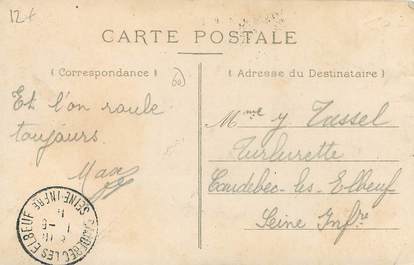 12+
CARTE POSTALE
( Correspondance )
( Adresse du Destinataire )
60
Et l'on roule
toujours.
Max
Mme y Tassel
Turlurette
Caudebec-les Elbeuf
Seine Infre
CAUDEBEC LES ELBEUF
SEINE-INFRE